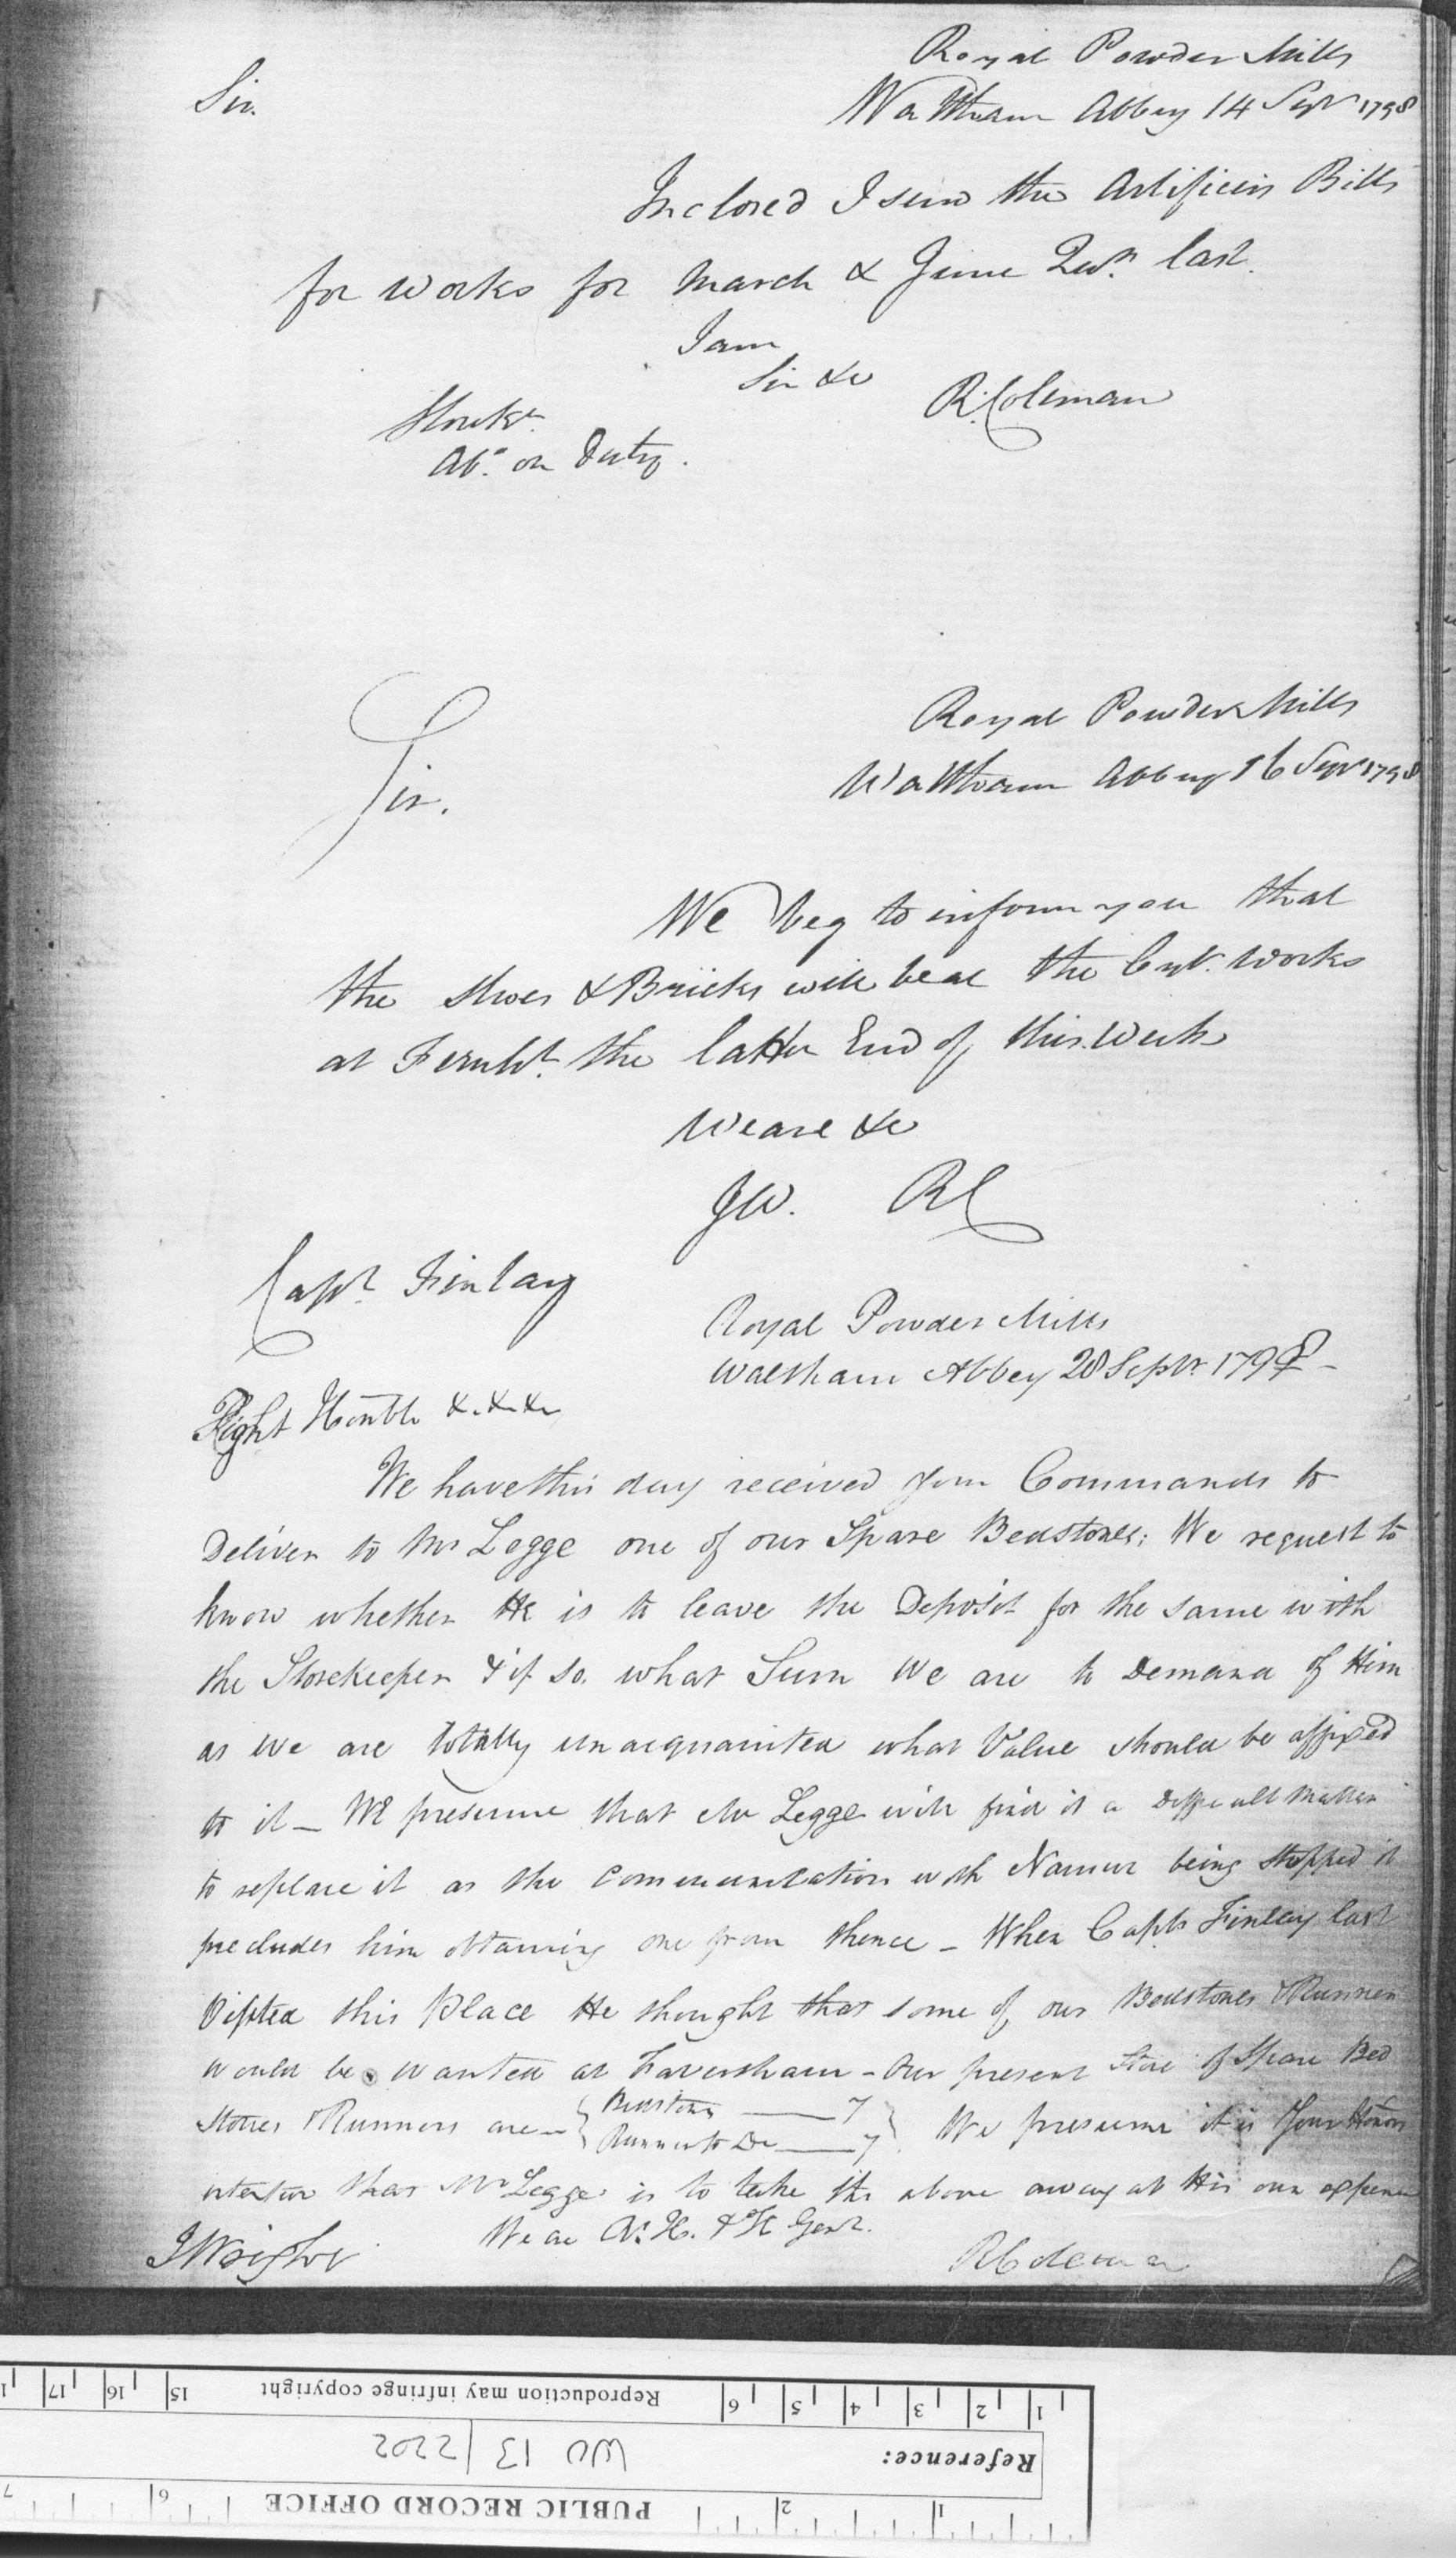 Royal Powder Mills
Sir.
Waltham Abbey 14 Sepr 1798
Inclosed I send the Artificers Bills
for Works for March & June Qurs last.
I am
Sir &c
R. Coleman
Storekr
abt on Duty.
Royal Powder Mills
Waltham Abbey 16 Sepr 1798
Sir.
We beg to inform you that
the Shoes & Bricks will be at the Cylr Works
at Fernhst the latter End of this Week
We are &c
JW. RC
Capt Finlay
Royal Powder Mills
Waltham Abbey 28 Septr 1798 -
Right Honble &. &c &c
We have this day received your Commands to
Deliver to Mr Legge one of our Spare Bedstones; We request to
know whether He is to leave the Deposit for the same with
the Storekeeper & if so. what Sum We are to Demand of Him
as We are totally unacquainted what Value should be affixed
to it - We presume that Mr Legge will find it a Difficult Matter
to replace it as the Communication with Namur being stopped it
precludes him obtaining one from thence - When Captn Finlay last
Visited this Place He thought that some of our Bedstones & Runners
would be wanted at Faversham - Our present Store of Spare Bed
Stones & Runners are - { Bedstones — 7
Runners to Do — 7 }. We presume it is Your Honors
intention that Mr Legge is to take the above away at His own expence
We are Rt H. & H Gent.
J Wright
R Coleman
Reproduction may infringe copyright
Reference:
WO 13 / 2202
PUBLIC RECORD OFFICE